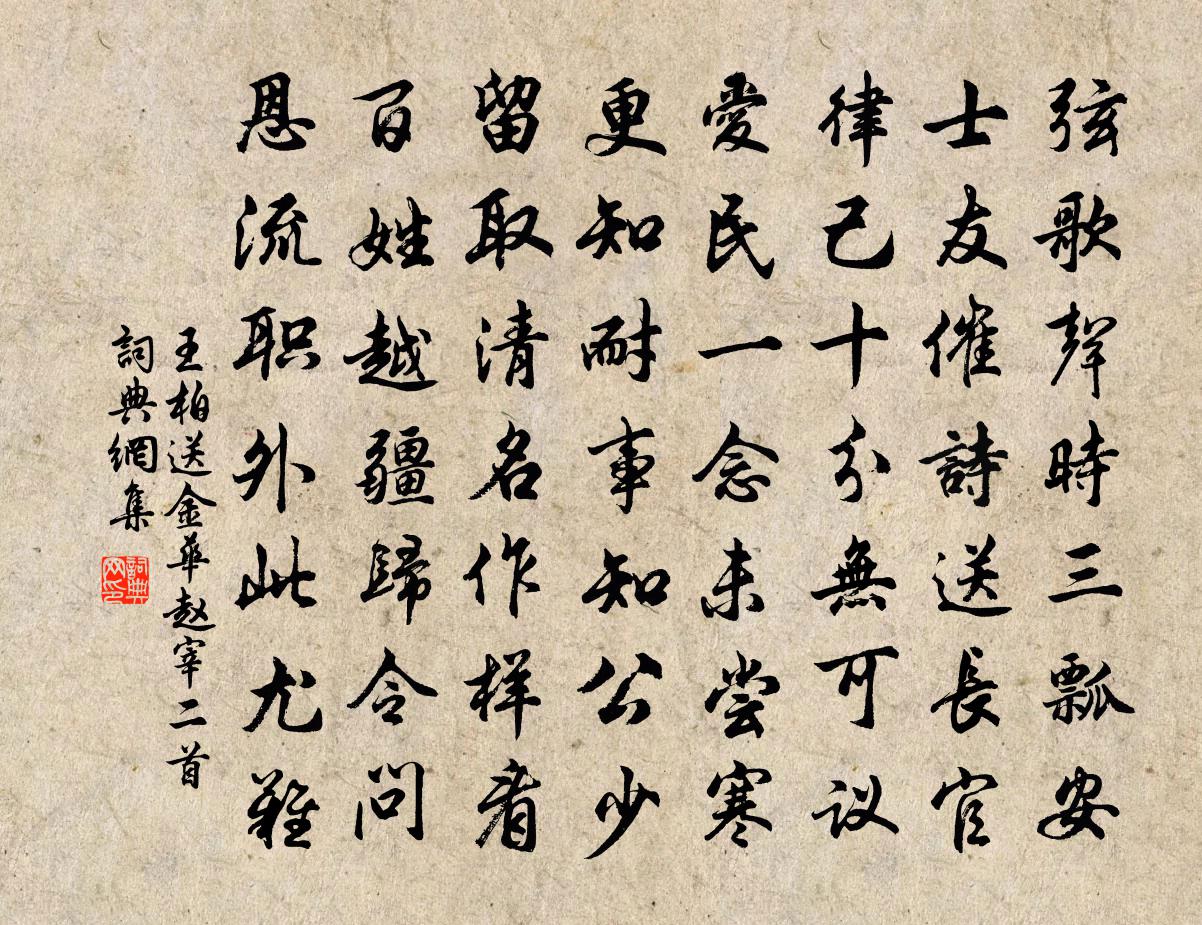 弦歌聲時三瓢安
士友催詩送長官
律己十分無可议
愛民一念未尝寒
更知耐事知公少
留取清名作样看
百姓越疆歸令问
恩流职外此尤難
王柏送金華赵宰二首
詞典網集
詞典网印